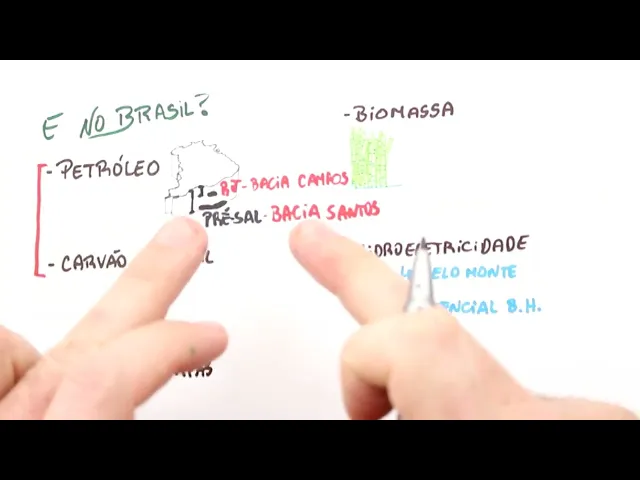 E NO BRASIL?
- PETRÓLEO
RJ - BACIA CAMPOS
PRÉ-SAL - BACIA SANTOS
- CARVÃO
- BIOMASSA
HIDROELETRICIDADE
BELO MONTE
B.H.